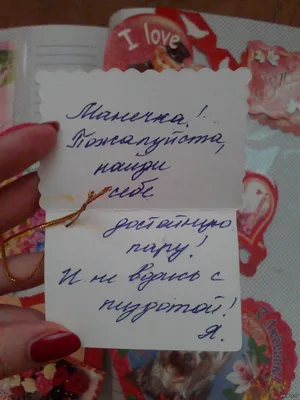 I love
Манечка!
Пожалуйста,
найди
себе
достойную
пару!
И не водись с
пиздотой!
Я.